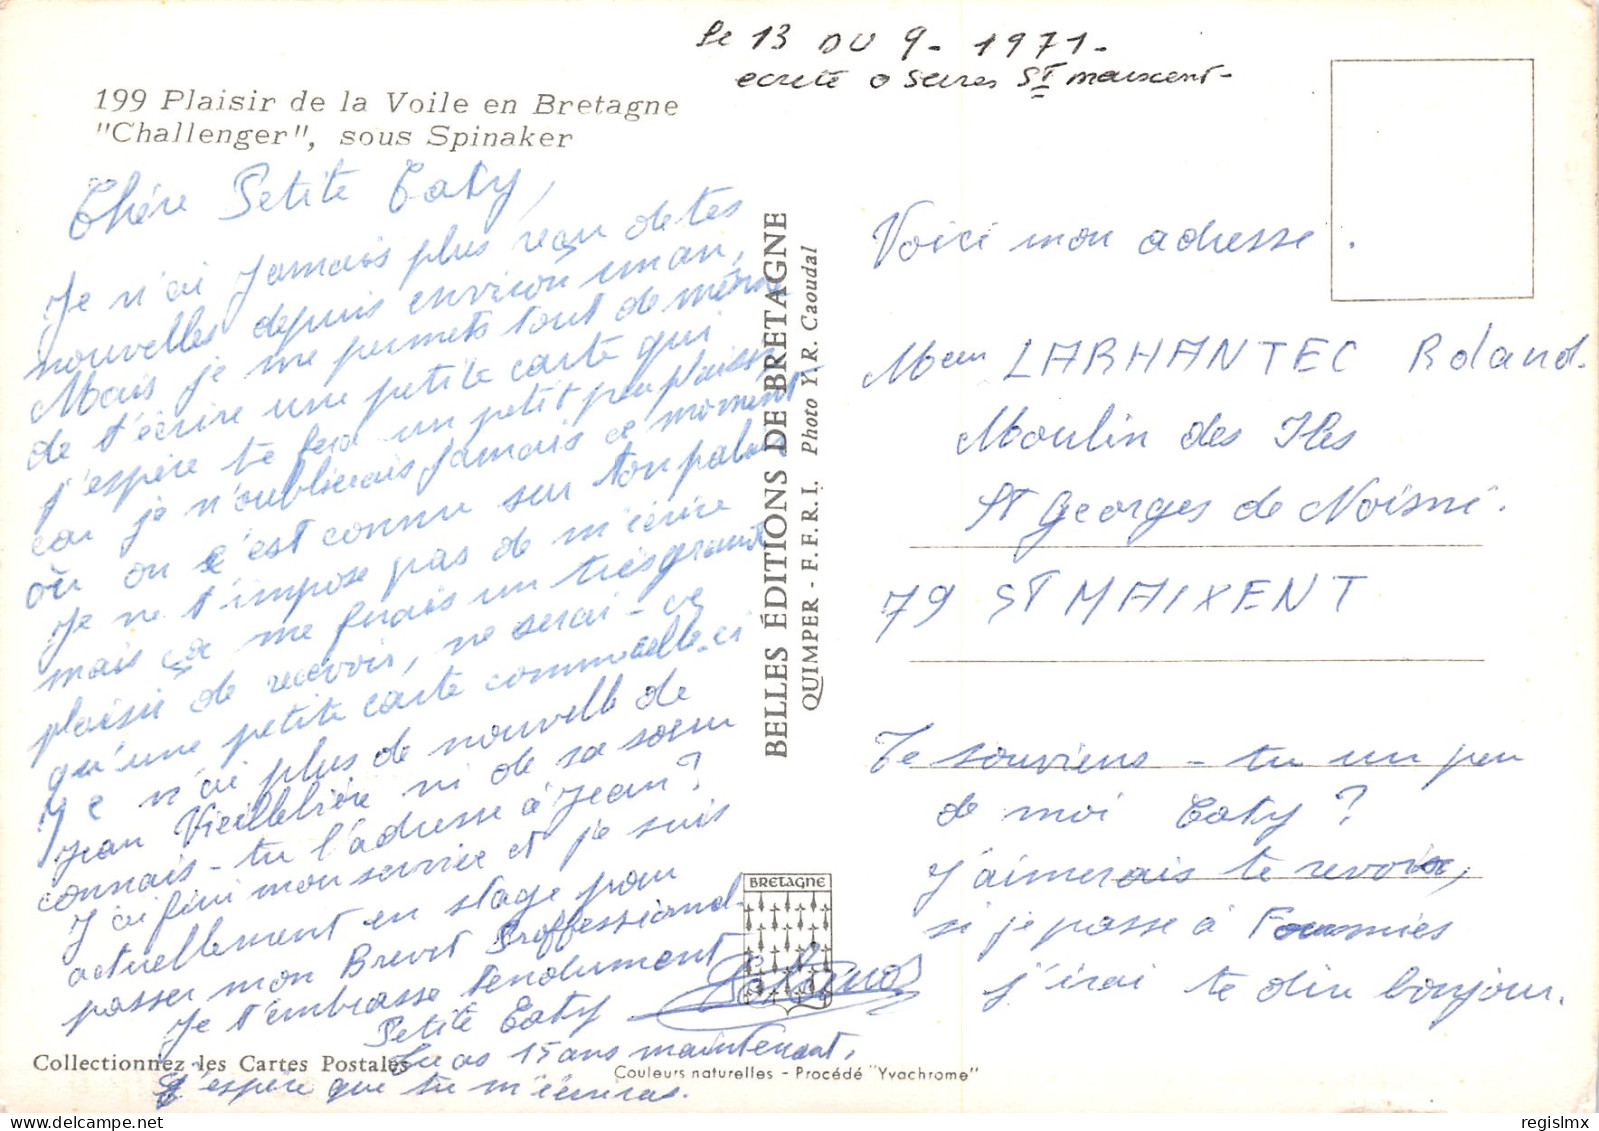 Le 13 DU 9 - 1971 -
ecrite a St maixent -
199 Plaisir de la Voile en Bretagne
"Challenger", sous Spinaker
Chére Petite Caty,
Je n'ai jamais plus reçu de tes
nouvelles depuis environ un an,
Mais je me permets tout de même
de t'écrire une petite carte qui
j'espère te fera un petit peu plaisir
car je n'oublierais jamais ce moment
où on c'est connu sur ton palier
Je ne t'impose pas de m'écrire
mais ça me ferais un très grand
plaisir de recevoir, ne serai-ce
qu'une petite carte comme celle-ci
Je n'ai plus de nouvelle de
Jean Vieillelière ni de sa soeur
connais-tu l'adresse à Jean?
J'ai fini mon service et je suis
actuellement en stage pour
passer mon Brevet Proffessional.
Je t'embrasse tendument
Petite Caty
Tu as 15 ans maintenant,
J'espère que tu m'écriras.
BELLES ÉDITIONS DE BRETAGNE
QUIMPER - F.F.R.I. Photo Y. R. Caoudal
BRETAGNE
Voici mon adresse.
LARHANTEC Roland.
Moulin des Iles
St Georges de Noisné.
79 ST MAIXENT
Te souviens-tu un peu
de moi Caty?
J'aimerais te revoir,
si je passe à Fourmies
j'irai te dire bonjour.
Collectionnez les Cartes Postales
Couleurs naturelles - Procédé "Yvachrome"
regislmx